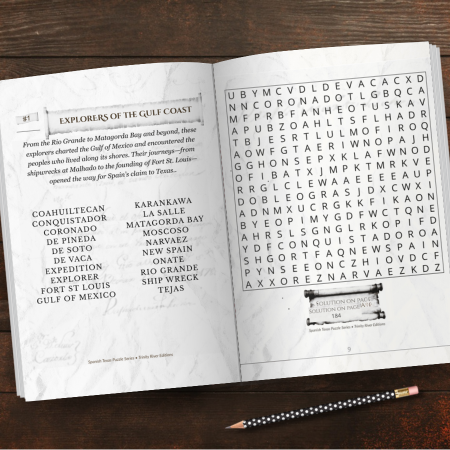 #1
EXPLORERS OF THE GULF COAST
From the Rio Grande to Matagorda Bay and beyond, these
explorers charted the Gulf of Mexico and encountered the
peoples who lived along its shores. Their journeys—from
shipwrecks at Malhado to the founding of Fort St. Louis—
opened the way for Spain's claim to Texas.
COAHUILTECAN
CONQUISTADOR
CORONADO
DE PINEDA
DE SOTO
DE VACA
EXPEDITION
EXPLORER
FORT ST LOUIS
GULF OF MEXICO
KARANKAWA
LA SALLE
MATAGORDA BAY
MOSCOSO
NARVAEZ
NEW SPAIN
ONATE
RIO GRANDE
SHIP WRECK
TEJAS
Spanish Texas Puzzle Series • Trinity River Editions
U B Y M C V D L D E V A C A C X D
N N C O R O N A D O T L G B Q C A
M F P R B F A N H E O T U S K A V
A P U B Z O A H L T S F L H A D R
T B J E S R T L U L M O F I R O Q
A O W F G T A E R I W N O P A J H
G G H O N S E P X K L A F W N O D
O F I B A T X J M P K T M R K V E
R R G L C L E W A A E E E E A U P
D O B L E O G R A S J D X C W X I
A D N M X U C R G K K F I K A O N
B Y E O P I M Y G D F W C T Q N E
A H R S L S G N G L R K O P I F D
Y D F C O N Q U I S T A D O R O A
S H G O R T F A Q N E W S P A I N
P Y N S E E O N C Z H I O V D C F
A X X O R E Z N A R V A E Z K D Z
SOLUTION ON PAGE
SOLUTION ON PAGE
184
Spanish Texas Puzzle Series • Trinity River Editions
9